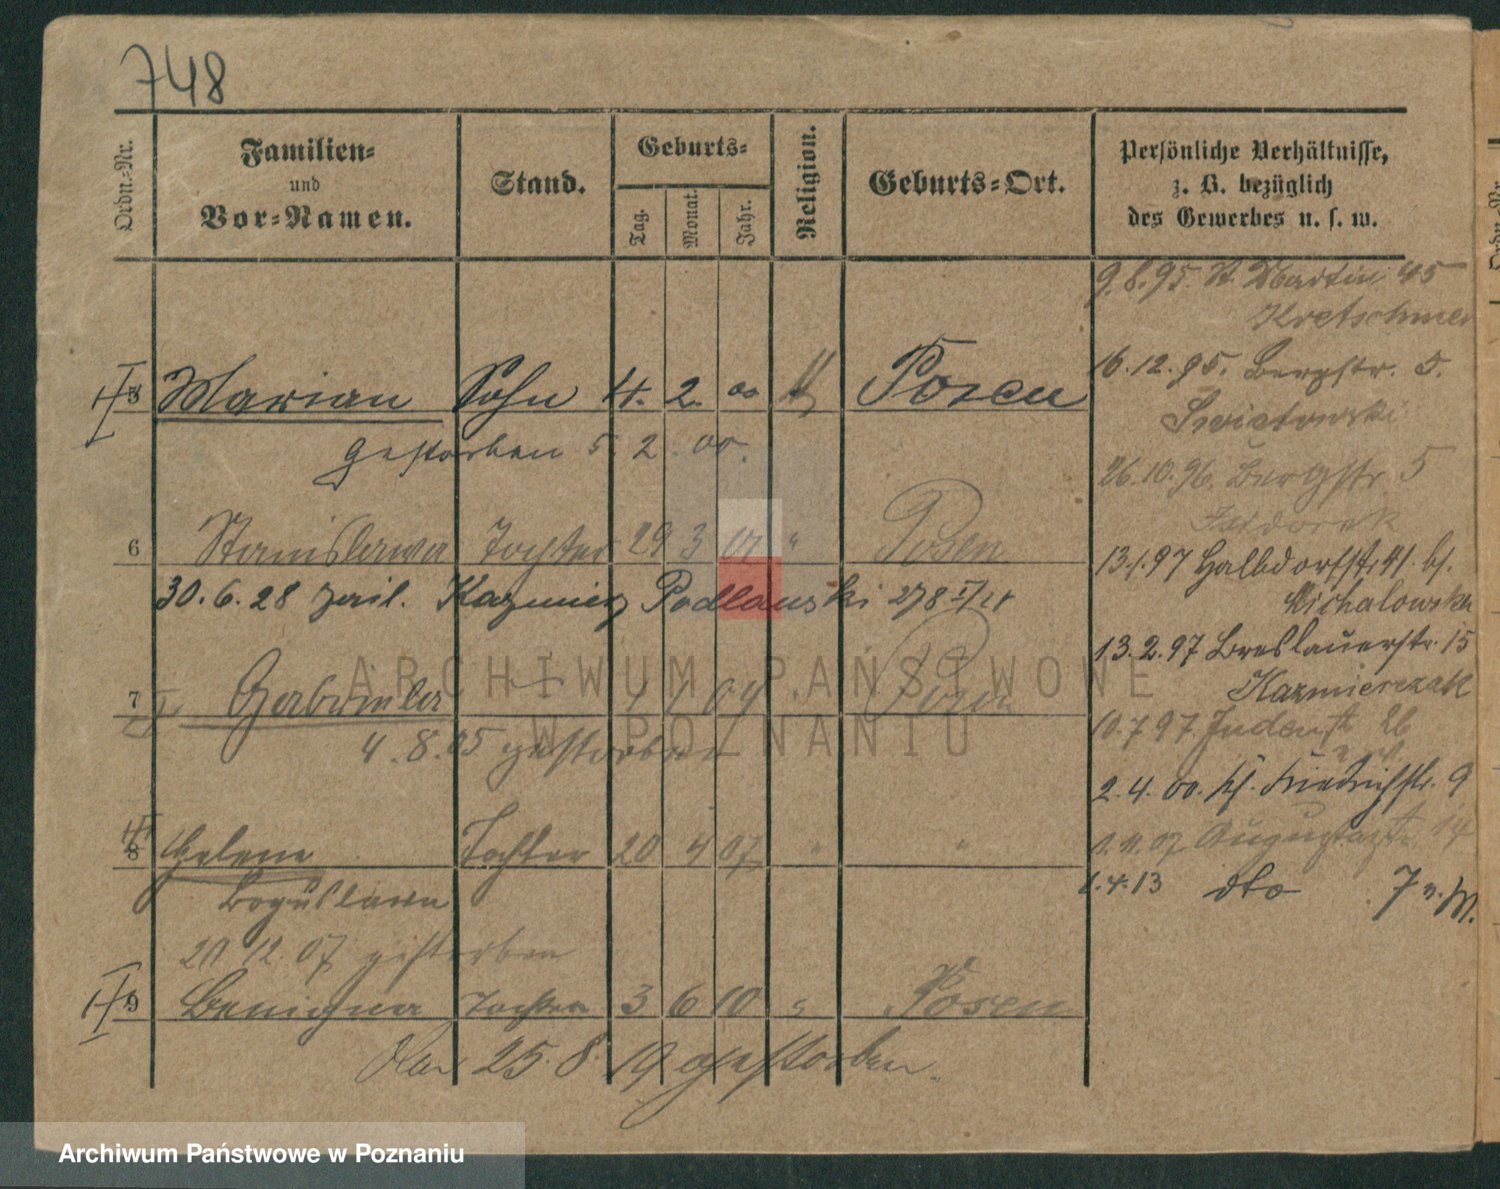 748
Ordn.-Nr.
Familien-
und
Vor-Namen.
Stand.
Geburts-
Tag.
Monat.
Jahr.
Religion.
Geburts-Ort.
Persönliche Verhältnisse,
z. B. bezüglich
des Gewerbes u. s. w.
9.8.95. St Martin 45
Kretschmer
16.12.95. Bergstr. 5.
Swietowski
26.10.96. Bergstr 5
13.1.97 Halbdorfst. 41 bs.
Michalowska
13.2.97 Breslauerstr. 15
Kazmierczak
10.7.97 Judenst 26
2.4.00. Friedrichstr. 9
07 Augustast 14
1.4.13 dto 7
Marian Sohn 4. 2. 00 Posen
gestorben 5. 2. 00.
6 Stanislawa Tochter 29 3 " Posen
30.6.28 Kazmierz Podlawski 278
7 1 1 04 " Posen
4.8.05 gestorben
8 Helene Tochter 20 4 07 " "
Boguslawa
12.07 gestorben
9 Benigna Tochter 3 6 10 " Posen
den 25.8.19 gestorben.
ARCHIWUM PAŃSTWOWE
W POZNANIU
Archiwum Państwowe w Poznaniu